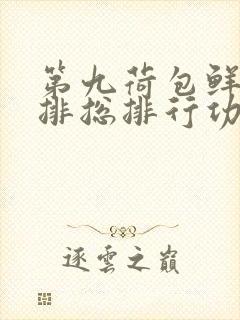 第九荷包鲜
排总排行功
逐云之巅